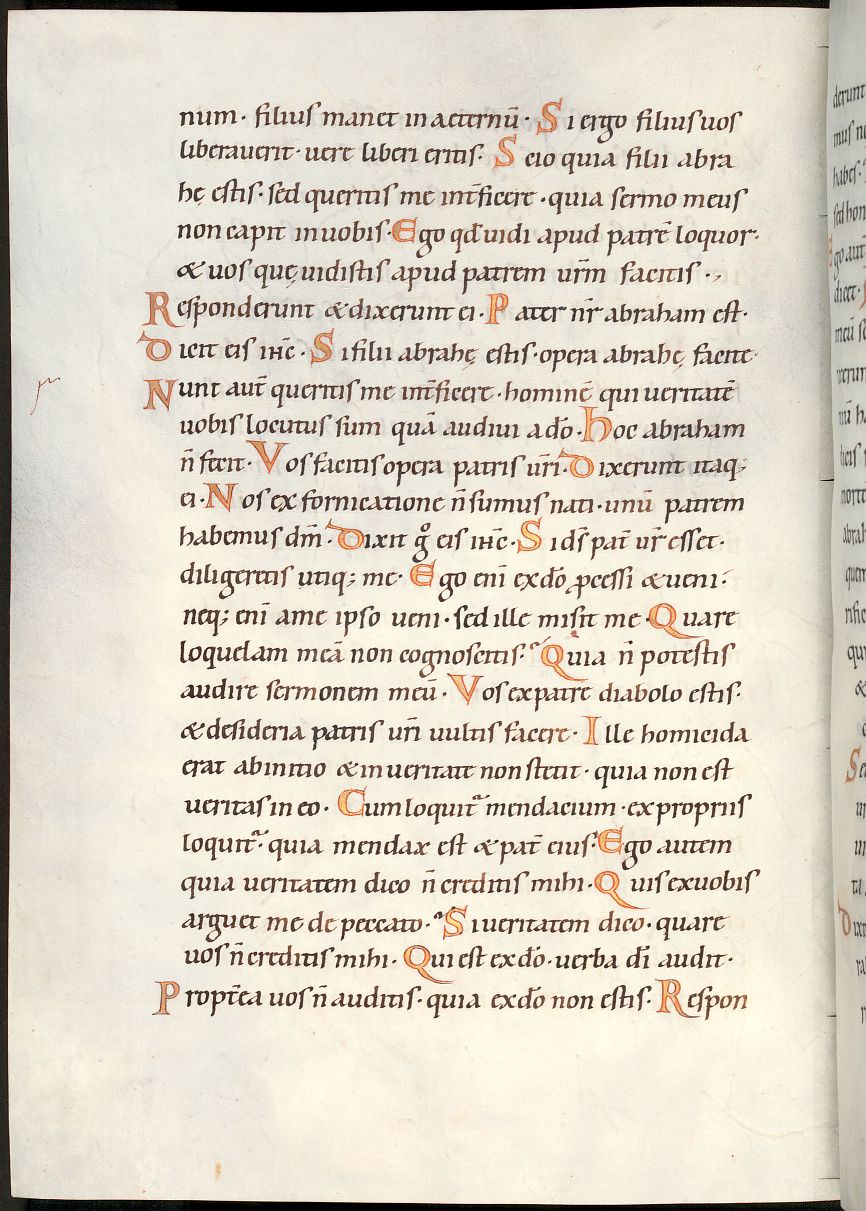 num· filiuſ manet in aeternū· Si ergo filiuſ uoſ
liberauerit· uere liberi eritiſ· Scio quia filii abra
hę eſtiſ· sed queritiſ me int̄ficere ·quia ſermo meuſ
non capit in uobiſ· Ego qđ uidi apud patrē loquor·
& uoſ quę uidiſtiſ apud patrem ur̄m facitiſ ·
Reſponderunt & dixerunt ei· Pater nr̄ abraham eſt·
Dicit eiſ ihc̄· Si filii abrahę eſtiſ· opera abrahę facite·
Nunc aut̄ queritiſ me int̄ficere· hominē qui ueritatē
uobiſ locutuſ ſum quā audiui a do̅· hoc abraham
n̄ fecit· Voſ facitiſ opera patriſ ur̄i· Dixerunt itaq;
ei· Noſ ex fornicatione n̄ ſumuſ nati· unū patrem
habemuſ dm̄· Dixit g̊ eiſ ihc̄· Si dſ̄ pat̄ ur̄ eſſet·
diligeretiſ utiq; me· Ego eni̅ ex do̅ ꝓceſſi & ueni·
neq; eni̅ a me ipſo ueni· ſed ille miſit me· Quare
loquelam meā non cognoſcitiſ· Quia n̄ poteſtiſ
audire ſermonem meū· Voſ ex patre diabolo eſtiſ·
& deſideria patriſ ur̄i uultiſ facere· Ille homicida
erat ab initio & in ueritate non ſtetit· quia non eſt
ueritaſ in eo· Cum loquit᷑ mendacium· ex propriiſ
loquit᷑· quia mendax eſt & pat̄ eiuſ· Ego autem
quia ueritatem dico n̄ creditiſ mihi· Quiſ ex uobiſ
arguet me de peccato· Si ueritatem dico· quare
uoſ n̄ creditiſ mihi· Qui eſt ex do̅· uerba di̅ audit·
Propt̄ea uoſ n̄ auditiſ· quia ex do̅ non eſtiſ· Reſpon